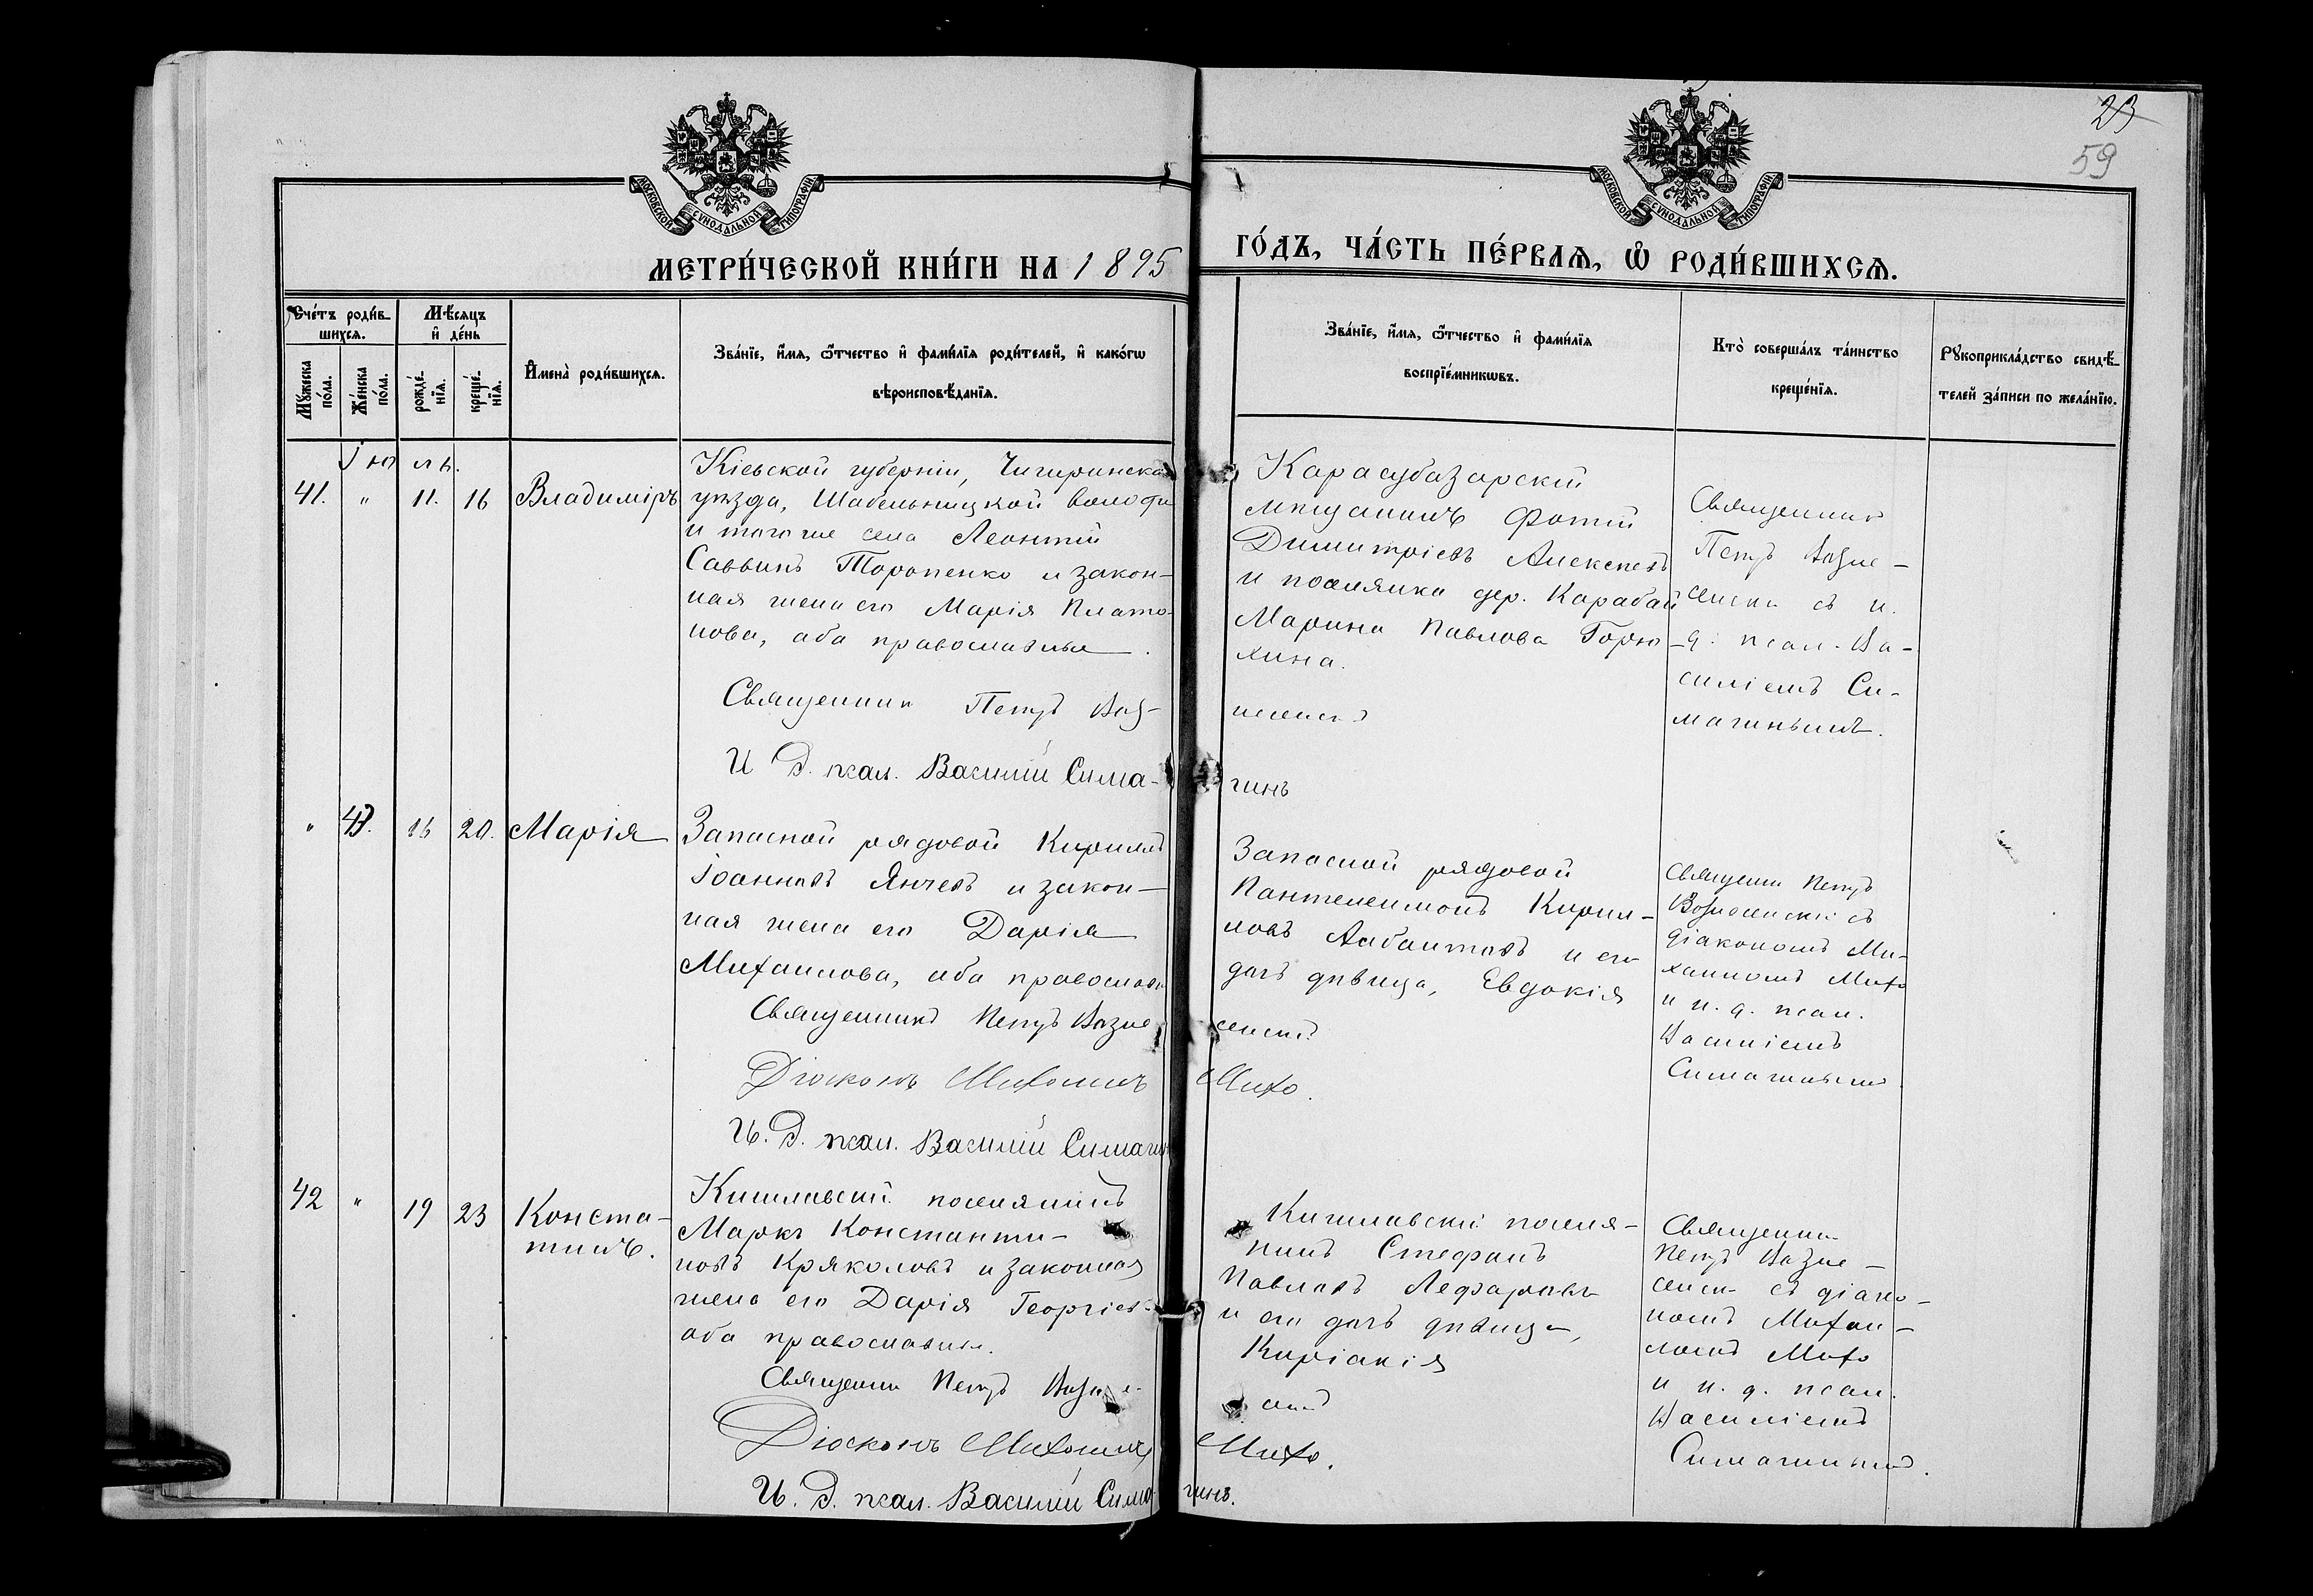 23
59
МОСКОВСКОЙ СѴНОДАЛЬНОЙ ТИПОГРАФІИ
МОСКОВСКОЙ СѴНОДАЛЬНОЙ ТИПОГРАФІИ
МЕТРИ́ЧЕСКОЙ КНИ́ГИ НА 1895
ГО́ДЪ, ЧА́СТЬ ПЕ́РВАѦ, Ѽ РОДИ́ВШИХСѦ.
Сче́тъ роди́в-
шихсѧ.
Мѣ́сѧцъ
и҆ де́нь
Мꙋ́жеска
по́ла.
Же́нска
по́ла.
рожде́-
нїѧ.
креще́-
нїѧ.
И҆мена̀ роди́вшихсѧ.
Зва́нїе, и҆́мѧ, ѻ҆́тчество и҆ фами́лїѧ роди́телей, и҆ како́гѡ
вѣроисповѣ́данїѧ.
Зва́нїе, и҆́мѧ, ѻ҆́тчество и҆ фами́лїѧ
воспрїе́мникѡвъ.
Кто̀ соверша́лъ та́инство
креще́нїѧ.
Рꙋкоприкла́дство свидѣ́-
телей за́писи по жела́нїю.
Іюль.
41. " 11. 16 Владиміръ
Кіевской губерніи, Чигиринска
уѣзда, Шабельницкой волости
и того же села Леонтій
Саввинъ Торопенко и закон-
ная жена его Марія Плато-
нова, оба православные.
Священникъ Петръ Воз-
несенскій
И Д. псал. Василій Сима-
гинъ
Карасубазарскій
мѣщанинъ Фотій
Димитріевъ Алексѣевъ
и поселянка дер. Карабай
Марина Павлова Горю-
хина.
Священник
Петръ Возне-
сенскі съ и.
д. псал. Ва-
силіемъ Си-
магинымъ.
" 43. 16 20. Марія
Запасной рядовой Кириллъ
Іоанновъ Янчевъ и закон-
ная жена его Дарія
Михаилова, оба православн
Священникъ Петръ Возне
сенскі
Діаконъ Михаилъ
Михо.
И. Д. псал. Василій Симагин
Запасной рядовой
Пантелеимонъ Кирил-
ловъ и его
дочь дѣвица, Евдокія
Священ Петръ
Вознесенскій съ
діакономъ Ми-
хаиломъ Михо
и и. д. псал.
Василіемъ
Симагиным
42 " 19 23 Конста-
тинъ.
Кишлавскій поселянинъ
Маркъ Константи-
новъ Кряколовъ и законная
жена его Дарія Георгіев-
оба православны.
Священни Петръ Возн
Діаконъ Михаилъ
Михо.
И. Д. псал. Василій Сима-
гинъ.
Кишлавскій поселя-
нинъ Стефанъ
Павловъ
и его дочь дѣвица,
Киріакія
Священни
Петръ Возне-
сенск съ діако-
номъ Михаи-
ломъ Михо
и и. д. псал.
Василіемъ
Симагинымъ.